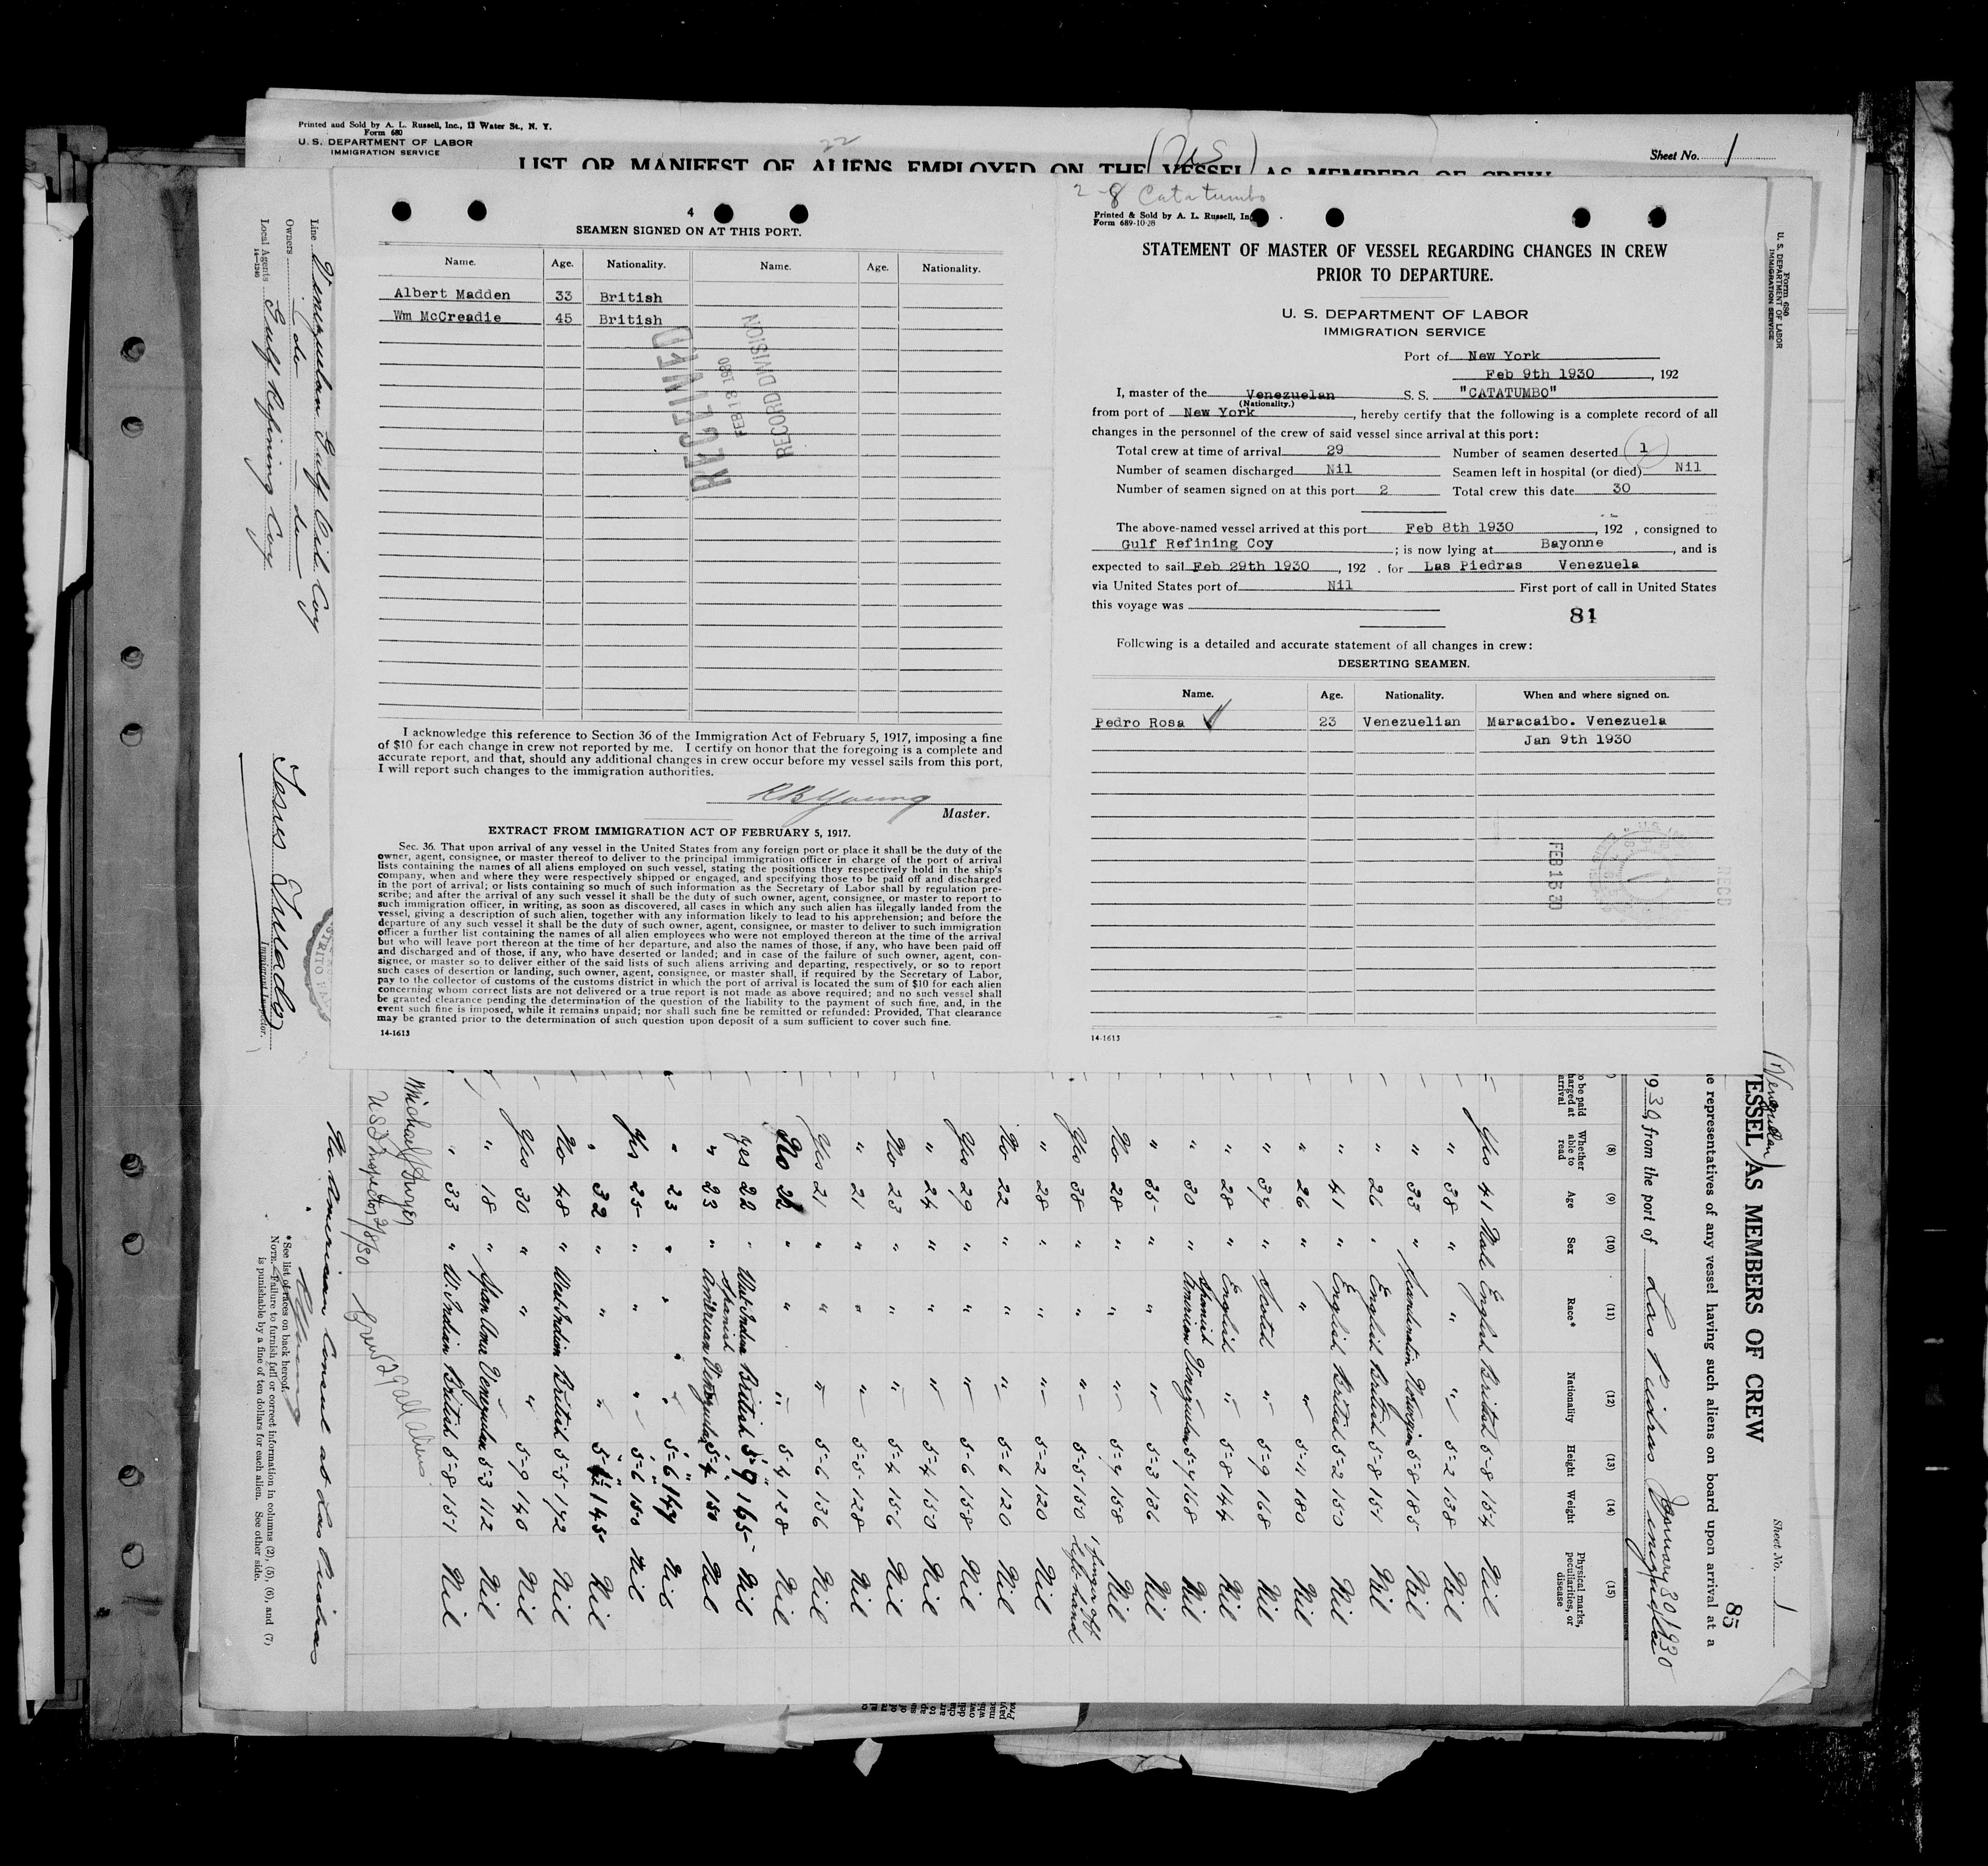 Printed and Sold by A. L. Russell, Inc., 13 Water St., N. Y.
Form 680
U. S. DEPARTMENT OF LABOR
IMMIGRATION SERVICE
22
(US)
LIST OR MANIFEST OF ALIENS EMPLOYED ON THE VESSEL AS MEMBERS OF CREW
Sheet No. 1
4
SEAMEN SIGNED ON AT THIS PORT.
Name. Age. Nationality. Name. Age. Nationality.
Albert Madden 33 British
Wm McCreadie 45 British
RECEIVED
FEB 13 1930
RECORD DIVISION
I acknowledge this reference to Section 36 of the Immigration Act of February 5, 1917, imposing a fine
of $10 for each change in crew not reported by me. I certify on honor that the foregoing is a complete and
accurate report, and that, should any additional changes in crew occur before my vessel sails from this port,
I will report such changes to the immigration authorities.
RB Young
Master.
EXTRACT FROM IMMIGRATION ACT OF FEBRUARY 5, 1917.
Sec. 36. That upon arrival of any vessel in the United States from any foreign port or place it shall be the duty of the
owner, agent, consignee, or master thereof to deliver to the principal immigration officer in charge of the port of arrival
lists containing the names of all aliens employed on such vessel, stating the positions they respectively hold in the ship's
company, when and where they were respectively shipped or engaged, and specifying those to be paid off and discharged
in the port of arrival; or lists containing so much of such information as the Secretary of Labor shall by regulation pre-
scribe; and after the arrival of any such vessel it shall be the duty of such owner, agent, consignee, or master to report to
such immigration officer, in writing, as soon as discovered, all cases in which any such alien has illegally landed from the
vessel, giving a description of such alien, together with any information likely to lead to his apprehension; and before the
departure of any such vessel it shall be the duty of such owner, agent, consignee, or master to deliver to such immigration
officer a further list containing the names of all alien employees who were not employed thereon at the time of the arrival
but who will leave port thereon at the time of her departure, and also the names of those, if any, who have been paid off
and discharged and of those, if any, who have deserted or landed; and in case of the failure of such owner, agent, con-
signee, or master so to deliver either of the said lists of such aliens arriving and departing, respectively, or so to report
such cases of desertion or landing, such owner, agent, consignee, or master shall, if required by the Secretary of Labor,
pay to the collector of customs of the customs district in which the port of arrival is located the sum of $10 for each alien
concerning whom correct lists are not delivered or a true report is not made as above required; and no such vessel shall
be granted clearance pending the determination of the question of the liability to the payment of such fine, and, in the
event such fine is imposed, while it remains unpaid; nor shall such fine be remitted or refunded: Provided, That clearance
may be granted prior to the determination of such question upon deposit of a sum sufficient to cover such fine.
14-1613
2-8 Catatumbo
Printed & Sold by A. L. Russell, In
Form 689-10-28
STATEMENT OF MASTER OF VESSEL REGARDING CHANGES IN CREW
PRIOR TO DEPARTURE.
U. S. DEPARTMENT OF LABOR
IMMIGRATION SERVICE
Port of New York
Feb 9th 1930, 192
I, master of the Venezuelan S. S. "CATATUMBO"
(Nationality.)
from port of New York, hereby certify that the following is a complete record of all
changes in the personnel of the crew of said vessel since arrival at this port:
Total crew at time of arrival 29 Number of seamen deserted 1
Number of seamen discharged Nil Seamen left in hospital (or died) Nil
Number of seamen signed on at this port 2 Total crew this date 30
The above-named vessel arrived at this port Feb 8th 1930, 192 , consigned to
Gulf Refining Coy ; is now lying at Bayonne, and is
expected to sail Feb 29th 1930, 192 . for Las Piedras Venezuela
via United States port of Nil First port of call in United States
this voyage was
81
Following is a detailed and accurate statement of all changes in crew:
DESERTING SEAMEN.
Name. Age. Nationality. When and where signed on.
Pedro Rosa 23 Venezuelian Maracaibo. Venezuela
Jan 9th 1930
FEB 15 30
RECD
14-1613
Form 680
U. S. DEPARTMENT OF LABOR
IMMIGRATION SERVICE
Line Venezuelan Gulf Oil Coy
Owners do do
Local Agents Gulf Refining Coy.
14-1240
Immigrant Inspector.
(Venezuelan)
Sheet No. 1
85
VESSEL AS MEMBERS OF CREW
e representatives of any vessel having such aliens on board upon arrival at a
January 30 1930
1930, from the port of Las Piedras Venezuela
to be paid
charged at
arrival
(8) Whether able to read
(9) Age
(10) Sex
(11) Race*
(12) Nationality
(13) Height
(14) Weight
(15) Physical marks, peculiarities, or disease
Yes 41 Male English British 5-8 154 Nil
" 38 " " " 5-2 138 Nil
" 33 " Scandinavian Norwegian 5-8 185 Nil
" 26 " English British 5-8 151 Nil
" 41 " English British 5-2 150 Nil
" 26 " " " 5-11 180 Nil
" 37 " Scotch " 5-9 168 Nil
" 28 " English " 5-8 144 Nil
" 30 " Spanish American Venezuelan 5-7 168 Nil
" 35 " " " 5-3 136 Nil
No 28 " " " 5-9 158 Nil
Yes 38 " " " 5-5 150 1 finger off left hand
" 28 " " " 5-2 120 Nil
No 22 " " " 5-6 120 Nil
Yes 29 " " " 5-6 158 Nil
" 24 " " " 5-4 150 Nil
No 23 " " " 5-4 156 Nil
" 21 " " " 5-5 128 Nil
Yes 21 " " " 5-6 136 Nil
No 32 " " " 5-4 128 Nil
Yes 22 " West Indian British 5-9 165 Nil
" 23 " Spanish American Venezuelan 5-4 150 Nil
" 23 " " " 5-6 147 Nil
Yes 25 " " " 5-6 150 Nil
" 32 " " " 145 Nil
No 48 " West Indian British 5-5 142 Nil
Yes 30 " " " 5-9 140 Nil
" 18 " Span Amer Venezuelan 5-3 112 Nil
" 33 " W. Indian British 5-8 151 Nil
US Inspector 2/8/30
Crew 29 all aliens
No American Consul at Las Piedras
*See list of races on back hereof.
NOTE.—Failure to furnish full or correct information in columns (2), (5), (6), and (7)
is punishable by a fine of ten dollars for each alien. See other side.